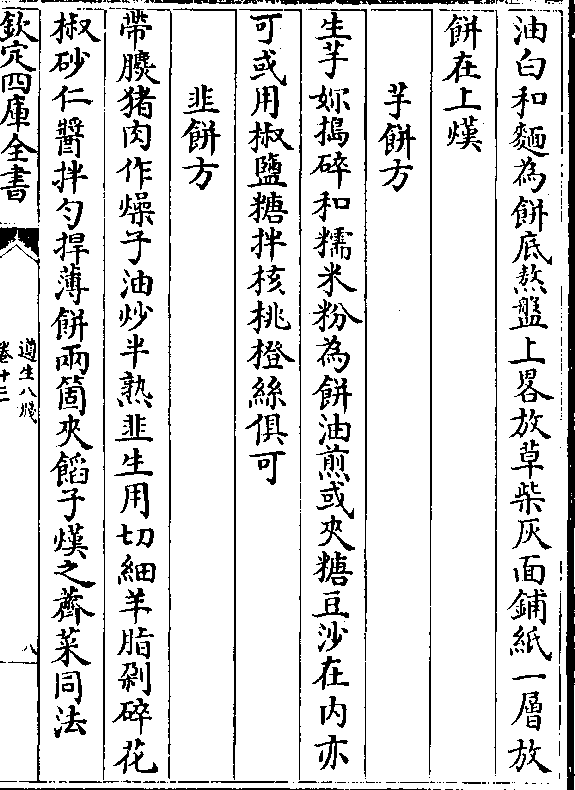 油白和麵為餅底熬盤上畧放草柴灰面鋪紙一層放
餅在上熯
芋餅方
生芋妳搗碎和糯米粉為餅油煎或夾糖豆沙在内亦
可或用椒鹽糖拌核桃橙絲俱可
韭餅方
帶臕猪肉作燥子油炒半熟韭生用切細羊脂剁碎花
椒砂仁醬拌勻捍薄餅兩箇夾餡子熯之薺菜同法
欽定四庫全書
遵生八牋
卷十三
八